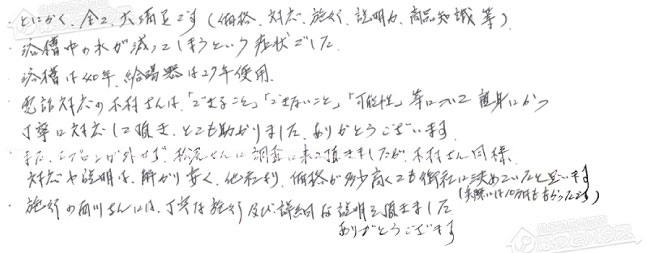 ・とにかく、全て、大満足です(価格、対応、施行、説明力、商品知識 等)
・浴槽中の水が減ってしまうという症状でした。
・浴槽は40年、給湯器は27年使用。
・電話対応の木村さんは、「できること」、「できないこと」、「可能性」等について親身にかつ
丁寧に対応して頂き、とても助かりました。ありがとうございます。
・また、エプロンが外せず、松尾さんに調査に来て頂きましたが木村さん同様、
対応や説明は、解かり安く、他社より、価格が多少高くても御社に決めていたと思います
(実際には10万円も安かったです)
・施行の前川さんには、丁寧な施行及び詳細な説明を頂きました
ありがとうございます